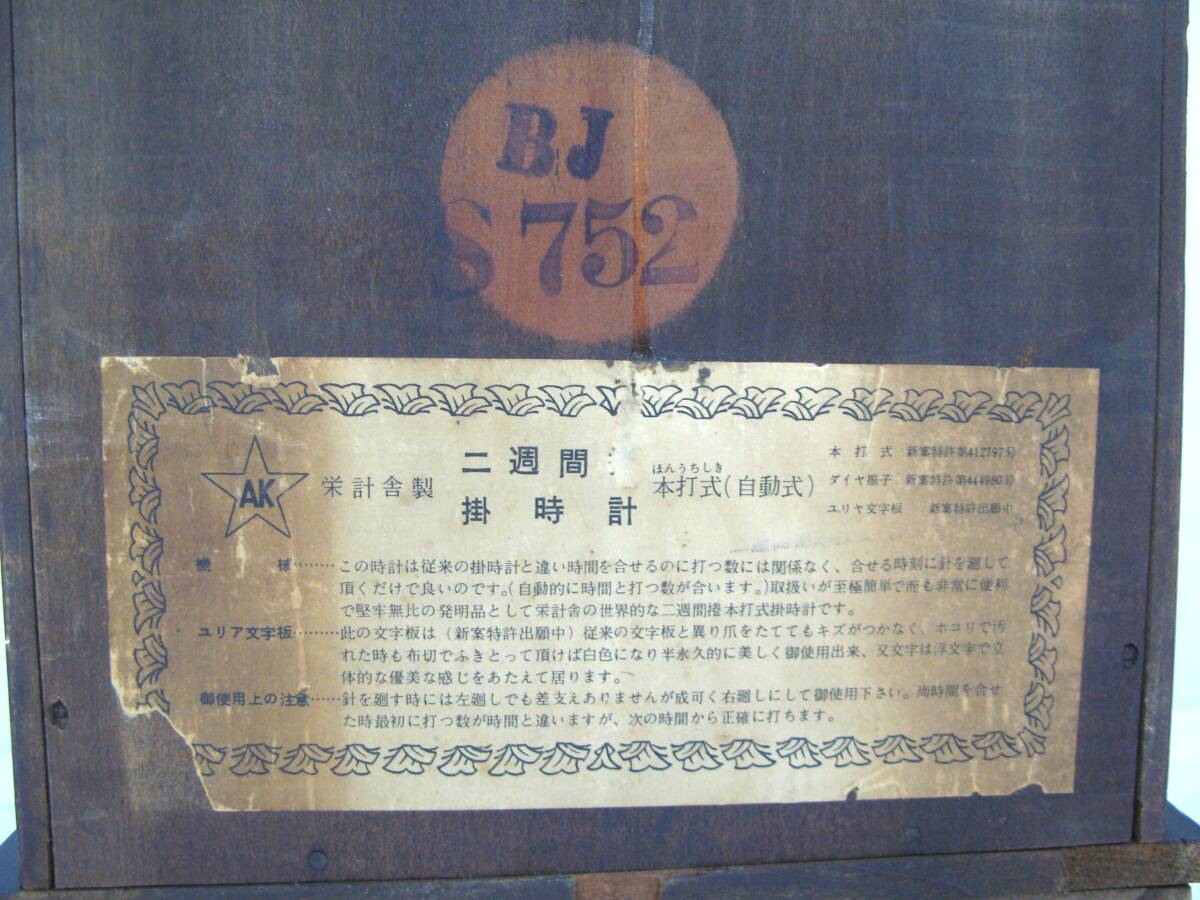 BJ
S 752
AK
栄計舎製
二週間
掛時計
ほんうちしき
本打式(自動式)
本打式 新案特許第412797号
ダイヤ振子 新案特許第444980号
ユリヤ文字板 新案特許出願中
機様………この時計は従来の掛時計と違い時間を合せるのに打つ数には関係なく、合せる時刻に針を廻して
頂くだけで良いのです。(自動的に時間と打つ数が合います。)取扱いが至極簡単で而も非常に便利
で堅牢無比の発明品として栄計舎の世界的な二週間捲本打式掛時計です。
ユリア文字板………此の文字板は(新案特許出願中)従来の文字板と異り爪をたててもキズがつかなく、ホコリで汚
れた時も布切でふきとって頂けば白色になり半永久的に美しく御使用出来、又文字は浮文字で立
体的な優美な感じをあたえて居ります。
御使用上の注意……針を廻す時には左廻しでも差支えありませんが成可く右廻しにして御使用下さい。尚時間を合せ
た時最初に打つ数が時間と違いますが、次の時間から正確に打ちます。